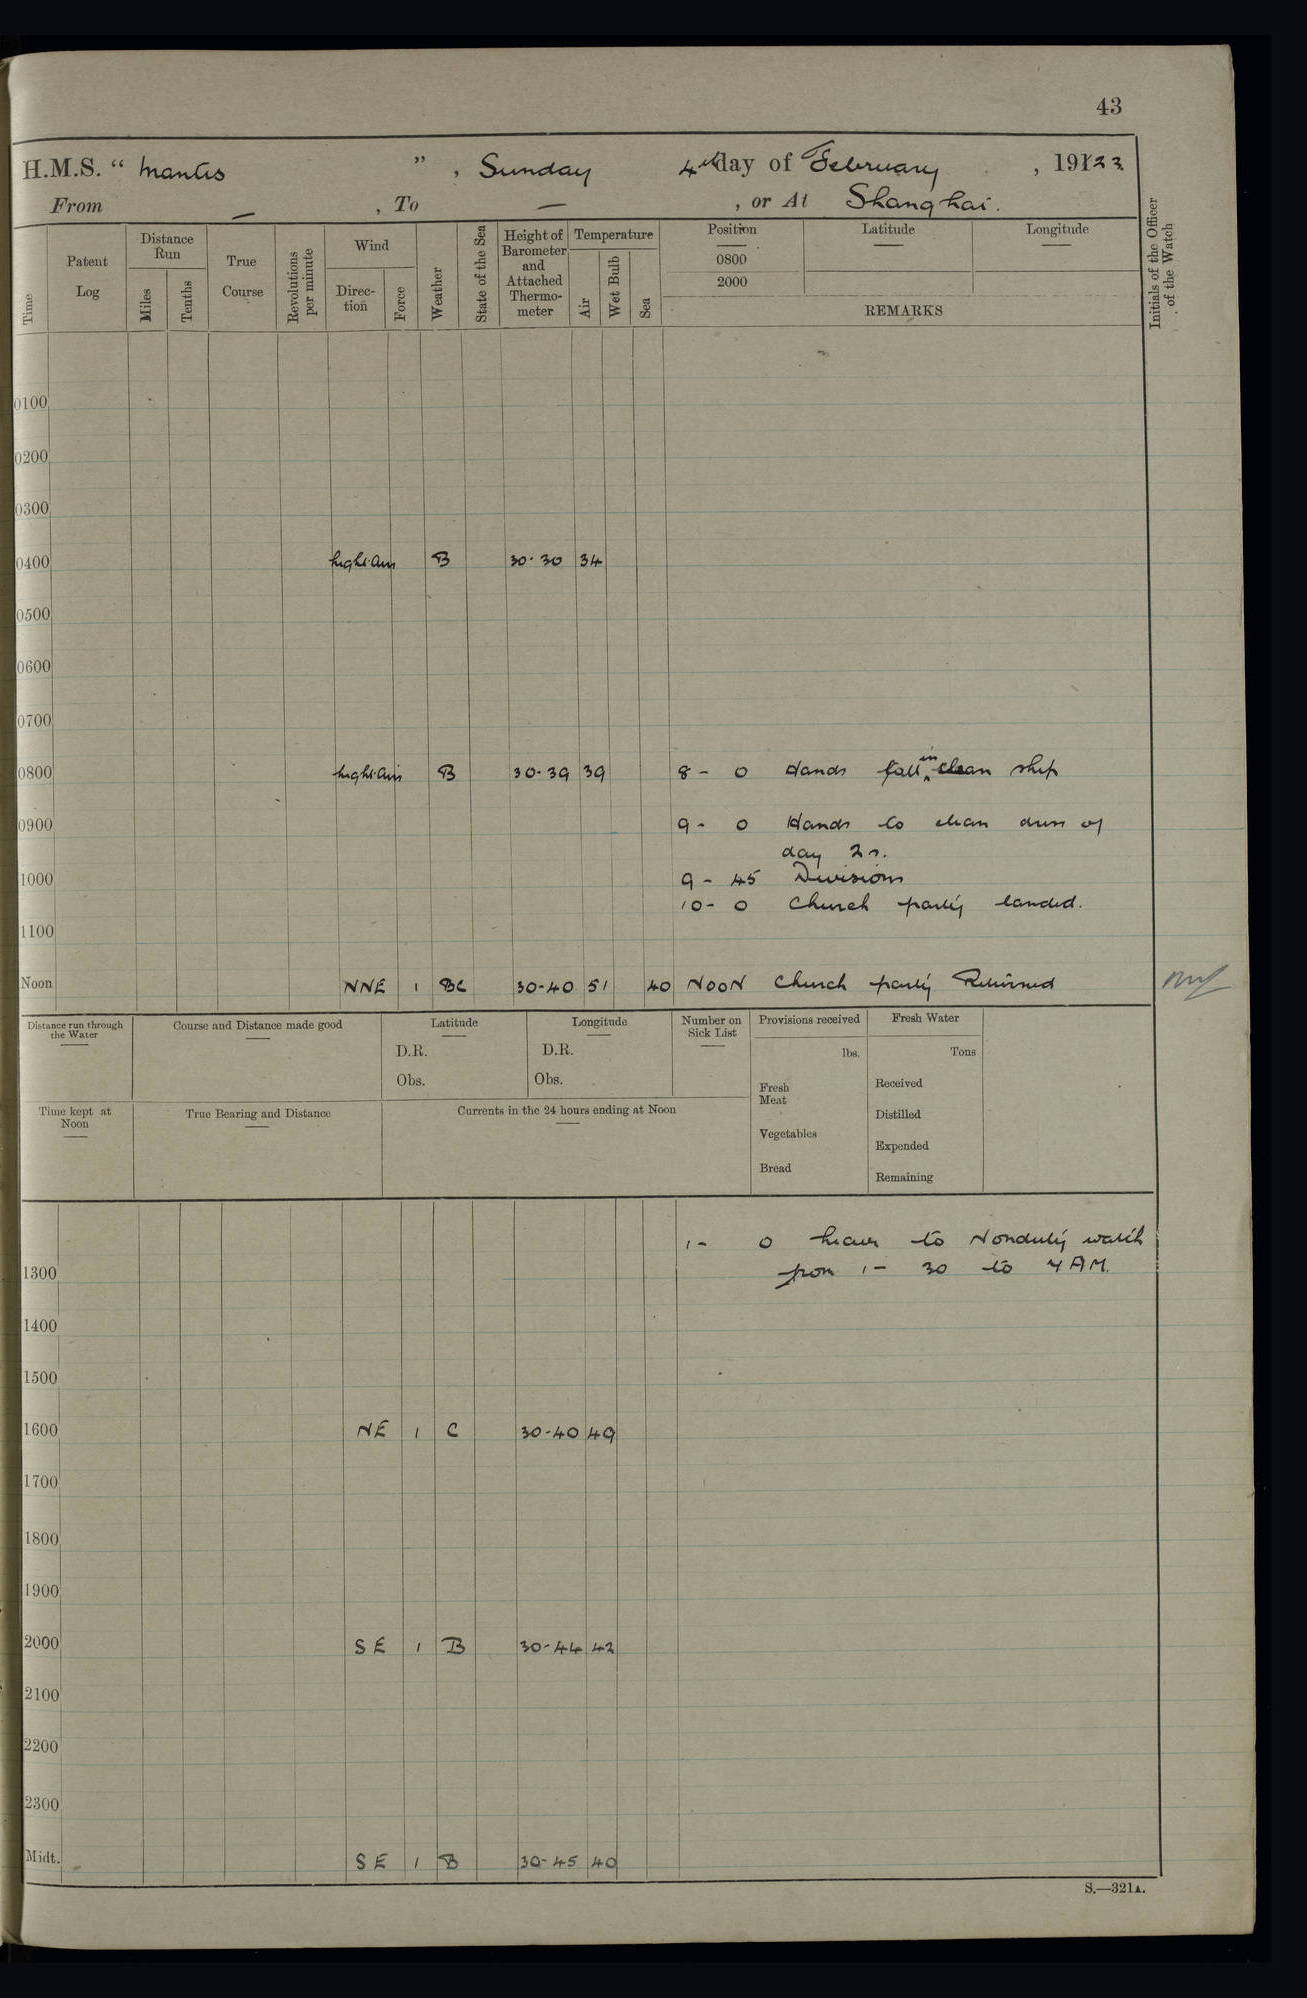 43
H.M.S. “ Mantis ”, Sunday 4th day of February, 1923
From — , To — , or At Shanghai.
Time
Patent Log
Distance Run
Miles
Tenths
True Course
Revolutions per minute
Wind
Direc-tion
Force
Weather
State of the Sea
Height of Barometer and Attached Thermo-meter
Temperature
Air
Wet Bulb
Sea
Position
0800
2000
Latitude
Longitude
REMARKS
Initials of the Officer of the Watch
0100
0200
0300
0400 Light Airs B 30.30 34
0500
0600
0700
0800 Light Airs B 30-39 39 8 - 0 Hands fall in clean ship
0900 9 - 0 Hands to clean dress of
day 2s.
1000 9 - 45 Divisions
10 - 0 Church party landed.
1100
Noon NNE 1 BC 30-40 51 40 NOON Church party Returned
Distance run through the Water
Course and Distance made good
Latitude
D.R.
Obs.
Longitude
D.R.
Obs.
Number on Sick List
Provisions received
lbs.
Fresh Meat
Vegetables
Bread
Fresh Water
Tons
Received
Distilled
Expended
Remaining
Time kept at Noon
True Bearing and Distance
Currents in the 24 hours ending at Noon
1 - 0 Leave to Nonduty watch
1300 from 1 - 30 to 7 AM.
1400
1500
1600 NE 1 C 30-40 49
1700
1800
1900
2000 SE 1 B 30-44 42
2100
2200
2300
Midt. SE 1 B 30-45 40
S.—321A.